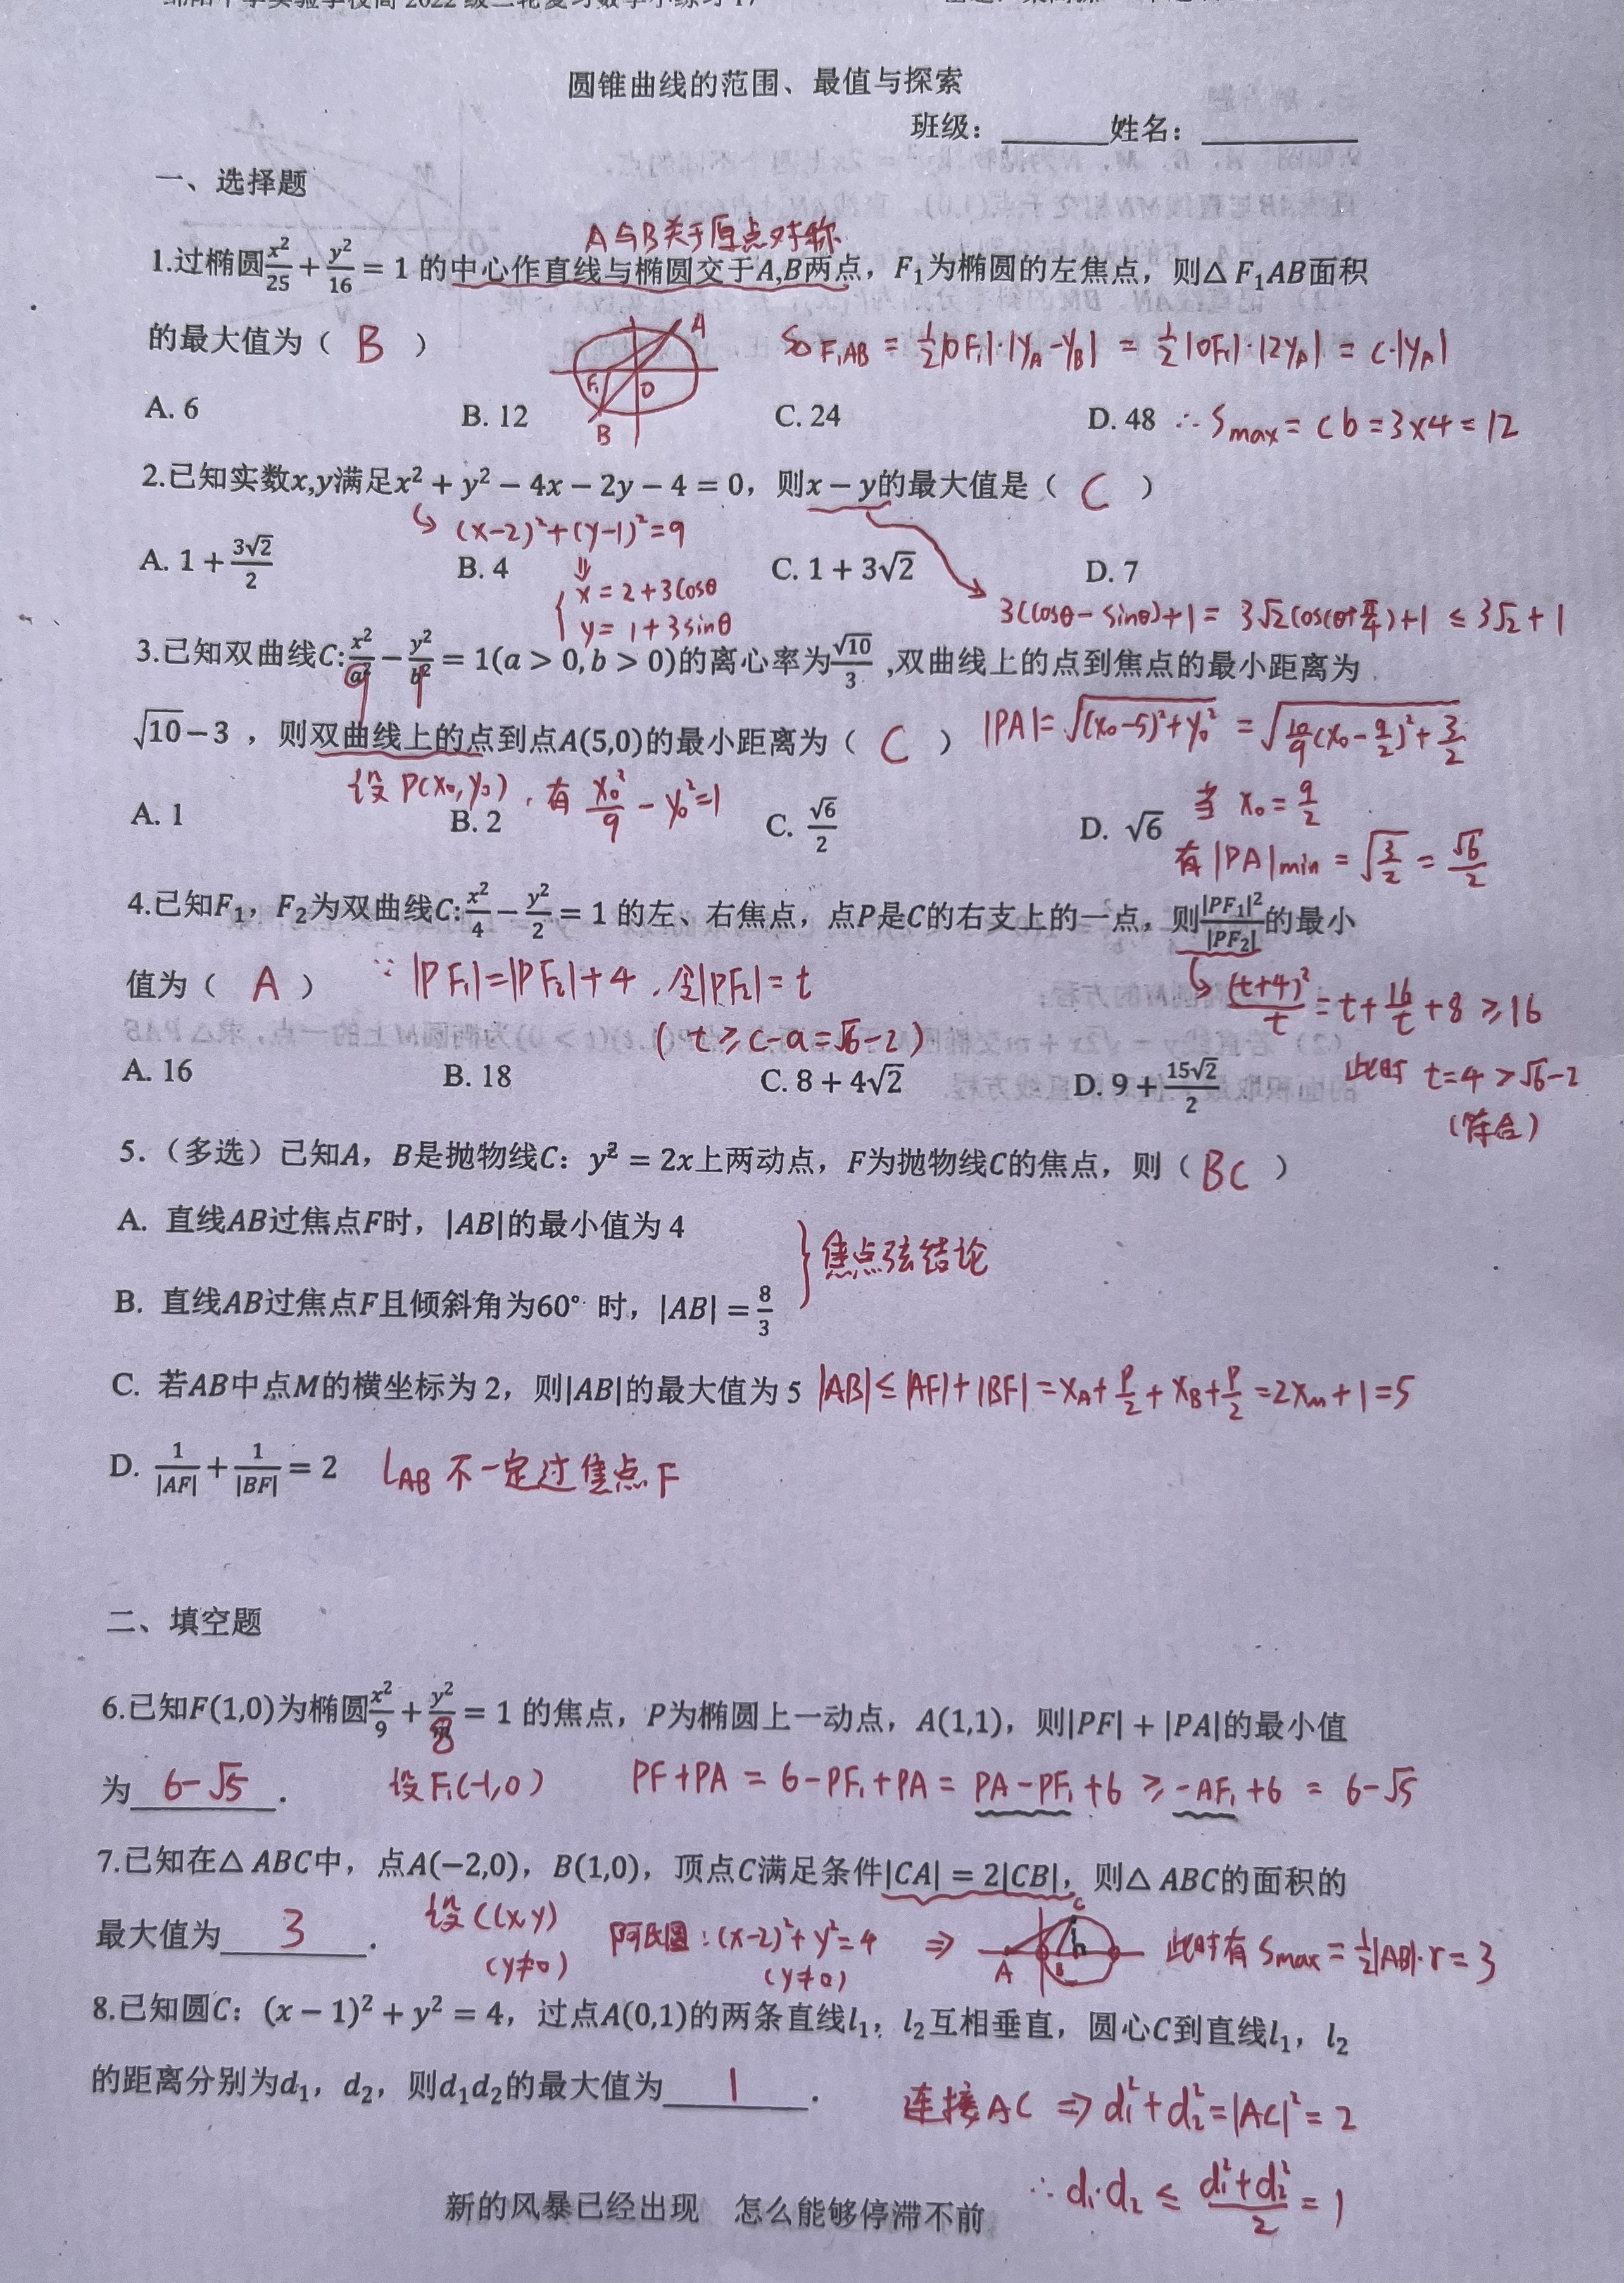 圆锥曲线的范围、最值与探索
班级：______姓名：________
一、选择题
A与B关于原点对称
1.过椭圆x²/25+y²/16=1 的中心作直线与椭圆交于A,B两点，F₁为椭圆的左焦点，则△F₁AB面积
的最大值为（ B ）
A
F₁
O
B
S△F₁AB = ½|OF₁|·|yA-yB| = ½|OF₁|·|2yA| = c·|yA|
A. 6 B. 12 C. 24 D. 48 ∴ Smax = cb = 3×4 = 12
2.已知实数x,y满足x²+y²−4x−2y−4=0，则x−y的最大值是（ C ）
↳ (x-2)²+(y-1)²=9
A. 1+3√2/2 B. 4 C. 1+3√2 D. 7
⇓
{ x = 2+3cosθ
y = 1+3sinθ
3(cosθ-sinθ)+1 = 3√2cos(θ+π/4)+1 ≤ 3√2+1
3.已知双曲线C:x²/a²−y²/b²=1(a>0,b>0)的离心率为√10/3 ,双曲线上的点到焦点的最小距离为
9 1
√10−3 ，则双曲线上的点到点A(5,0)的最小距离为（ C ） |PA|=√((x₀-5)²+y₀²) = √(10/9(x₀-9/2)²+3/2)
设 P(x₀,y₀)，有 x₀²/9 - y₀²=1
A. 1 B. 2 C. √6/2 D. √6
当 x₀ = 9/2
有 |PA|min = √(3/2) = √6/2
4.已知F₁，F₂为双曲线C:x²/4−y²/2=1 的左、右焦点，点P是C的右支上的一点，则|PF₁|²/|PF₂|的最小
值为（ A ） ∵ |PF₁|=|PF₂|+4，令|PF₂|=t
↳ (t+4)²/t = t+16/t+8 ≥16
( t ≥ c-a=√6-2 )
A. 16 B. 18 C. 8+4√2 D. 9+15√2/2
此时 t=4 >√6-2
(符合)
5.（多选）已知A，B是抛物线C：y²=2x上两动点，F为抛物线C的焦点，则（ BC ）
A. 直线AB过焦点F时，|AB|的最小值为 4
} 焦点弦结论
B. 直线AB过焦点F且倾斜角为60° 时，|AB|=8/3
C. 若AB中点M的横坐标为 2，则|AB|的最大值为 5 |AB|≤|AF|+|BF|=xA+p/2+xB+p/2=2xM+1=5
D. 1/|AF|+1/|BF|=2 lAB 不一定过焦点F
二、填空题
6.已知F(1,0)为椭圆x²/9+y²/8=1 的焦点，P为椭圆上一动点，A(1,1)，则|PF|+|PA|的最小值
为 6-√5 . 设 F₁(-1,0) PF+PA = 6-PF₁+PA = PA-PF₁+6 ≥ -AF₁+6 = 6-√5
7.已知在△ABC中，点A(−2,0)，B(1,0)，顶点C满足条件|CA|=2|CB|，则△ABC的面积的
最大值为 3 . 设C(x,y)
(y≠0)
阿氏圆：(x-2)²+y²=4 ⇒
(y≠0)
C
h
A B
此时有 Smax = ½|AB|·r = 3
8.已知圆C：(x−1)²+y²=4，过点A(0,1)的两条直线l₁，l₂互相垂直，圆心C到直线l₁，l₂
的距离分别为d₁，d₂，则d₁d₂的最大值为 1 .
连接AC ⇒ d₁²+d₂²=|AC|²=2
∴ d₁·d₂ ≤ (d₁²+d₂²)/2 = 1
新的风暴已经出现 怎么能够停滞不前